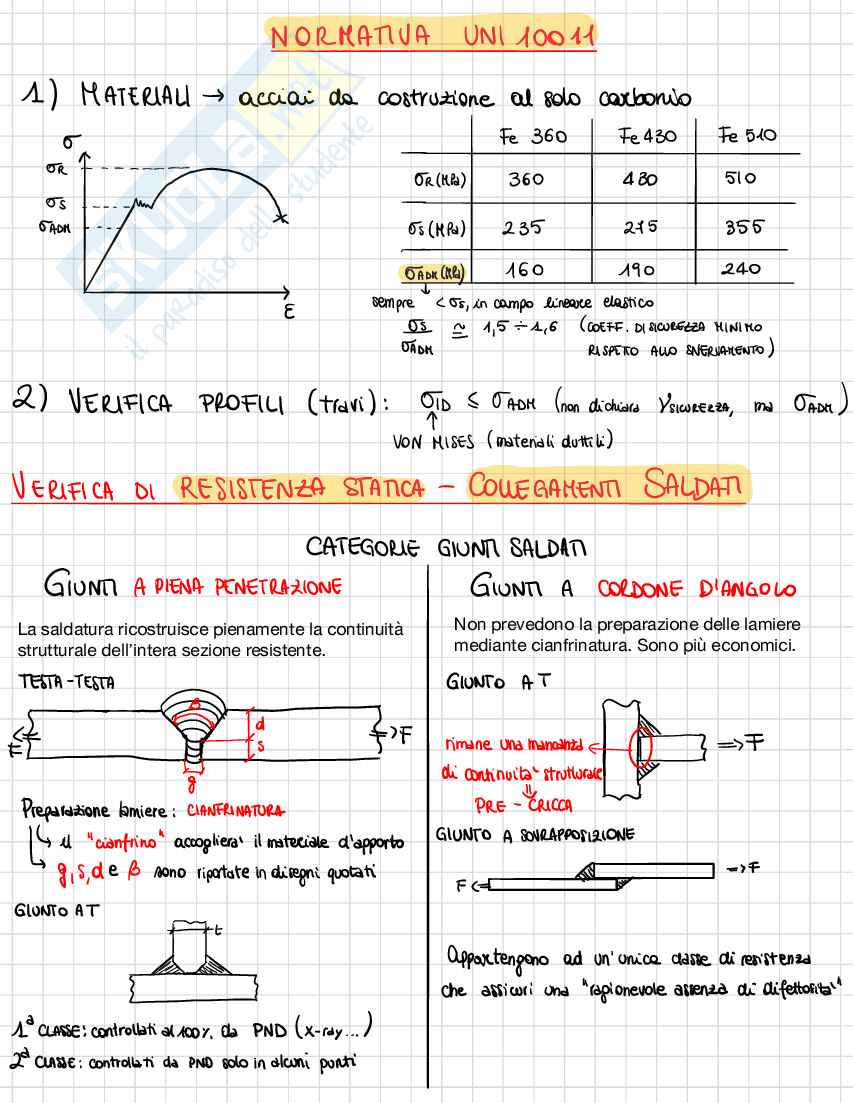 NORMATIVA UNI 10011
1) MATERIALI → acciai da costruzione al solo carbonio
σ
σR
σS
σADM
ε
Fe 360 Fe 430 Fe 510
σR (MPa) 360 430 510
σS (MPa) 235 275 355
σADM (MPa) 160 190 240
sempre < σS, in campo lineare elastico
σS/σADM ≃ 1,5 ÷ 1,6 (COEFF. DI SICUREZZA MINIMO
RISPETTO ALLO SNERVAMENTO)
2) VERIFICA PROFILI (travi): σID ≤ σADM (non dichiara γSICUREZZA, ma σADM)
VON MISES (materiali duttili)
VERIFICA DI RESISTENZA STATICA – COLLEGAMENTI SALDATI
CATEGORIE GIUNTI SALDATI
GIUNTI A PIENA PENETRAZIONE
La saldatura ricostruisce pienamente la continuità
strutturale dell'intera sezione resistente.
TESTA-TESTA
β
d
s
F
F
g
Preparazione lamiere: CIANFRINATURA
il "cianfrino" accoglierà il materiale d'apporto
g,s,d e β sono riportate in disegni quotati
GIUNTO A T
t
1ª CLASSE: controllati al 100% da PND (X-ray...)
2ª CLASSE: controllati da PND solo in alcuni punti
GIUNTI A CORDONE D'ANGOLO
Non prevedono la preparazione delle lamiere
mediante cianfrinatura. Sono più economici.
GIUNTO A T
rimane una mancanza
di continuità strutturale
PRE-CRICCA
F
GIUNTO A SOVRAPPOSIZIONE
F
F
Appartengono ad un'unica classe di resistenza
che assicuri una "ragionevole assenza di difettosità"
SKUOLA.net
il paradiso dello studente